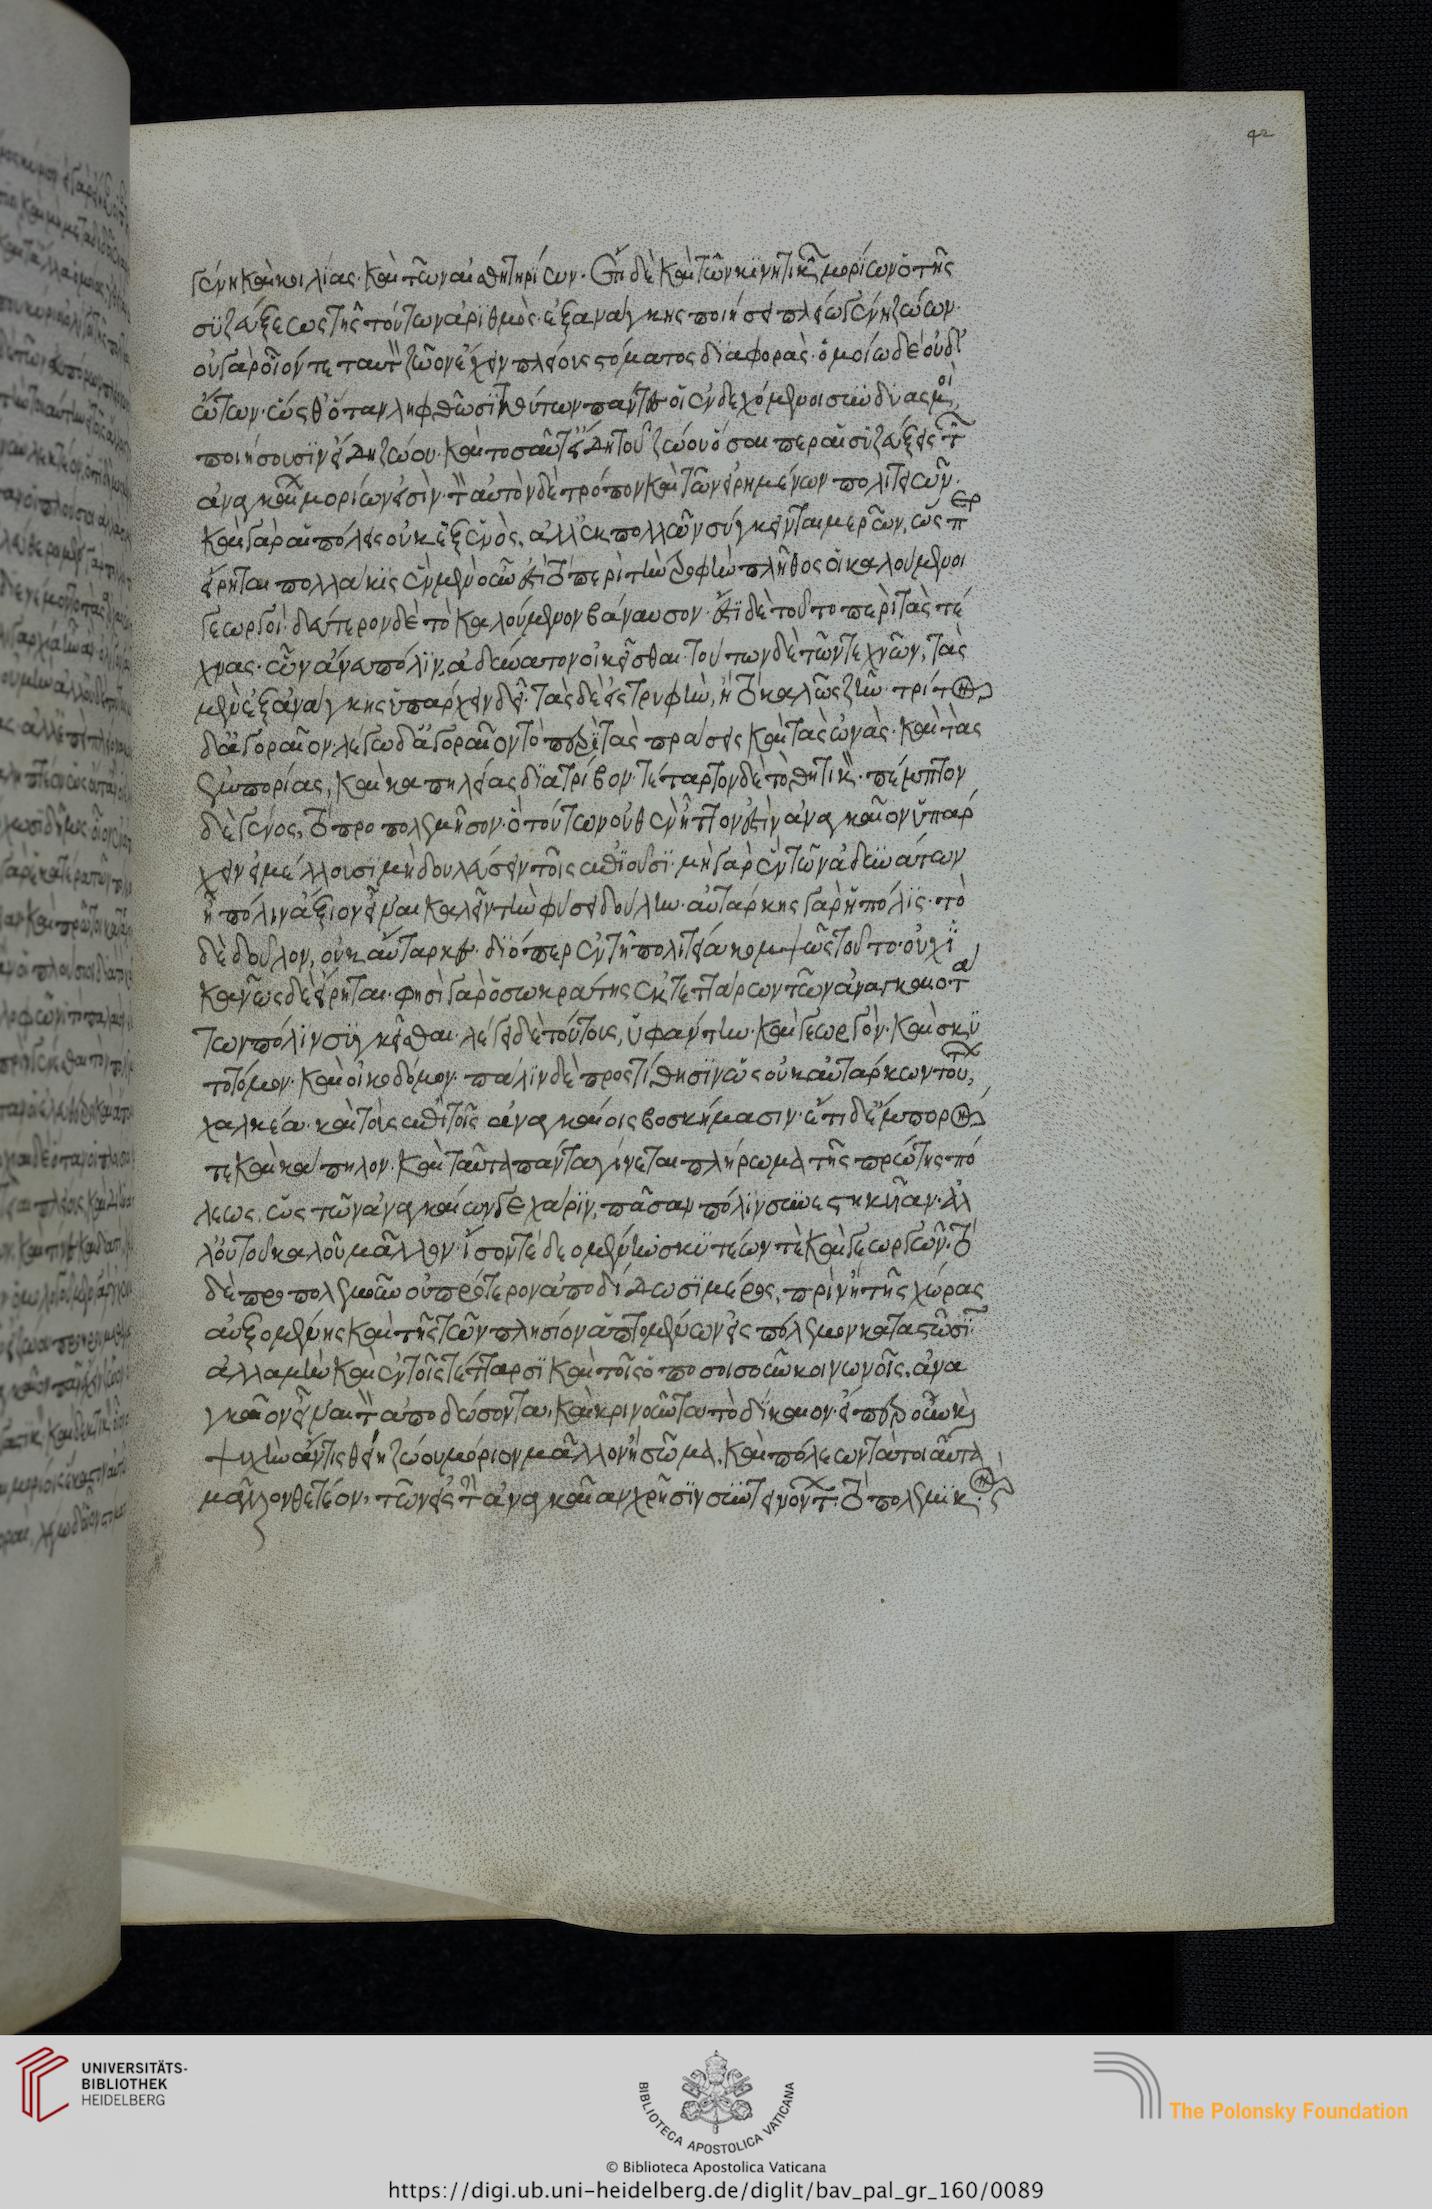 42
γένη καὶ κοιλίας· καὶ τῶν αἰσθητηρίων. ἔτι δὲ καὶ τῶν κινητικῶν μορίων ὁ τῆς
συζεύξεως τῆς τούτων ἀριθμὸς, ἐξ ἀνάγκης ποιήσει πλείω γένη ζώων·
οὐ γὰρ οἷόν τε ταυτὸν ζῶον ἔχειν πλείους στόματος διαφορὰς· ὁμοίως δὲ οὐδ'
ὤτων· ὥσθ' ὅταν ληφθῶσι τούτων πάντες οἱ ἐνδεχόμενοι συνδυασμοὶ,
ποιήσουσιν εἴδη ζώου· καὶ τοσαῦτ' εἴδη τοῦ ζώου ὅσαι περ αἱ συζεύξεις τῶν
ἀναγκαίων μορίων εἰσίν· τὸν αὐτὸν δὲ τρόπον καὶ τῶν εἰρημένων πολιτειῶν·
καὶ γὰρ αἱ πόλεις οὐκ ἐξ ἑνὸς, ἀλλ' ἐκ πολλῶν σύγκεινται μερῶν, ὥσπερ
εἴρηται πολλάκις· ἓν μὲν οὖν ἐστὶ τὸ περὶ τὴν τροφὴν πλῆθος οἱ καλούμενοι
γεωργοί· δεύτερον δὲ τὸ καλούμενον βάναυσον· ἔστι δὲ τοῦτο περὶ τὰς τέ
χνας· ὧν ἄνευ πόλιν, ἀδύνατον οἰκεῖσθαι· τούτων δὲ τῶν τεχνῶν, τὰς
μὲν ἐξ ἀνάγκης ὑπάρχειν δεῖ· τὰς δὲ εἰς τρυφὴν, ἢ τὸ καλῶς ζῆν· τρίτον
δ' ἀγοραῖον· λέγω δ' ἀγοραῖον τὸ περὶ τὰς πράσεις καὶ τὰς ὠνὰς· καὶ τὰς
ἐμπορίας, καὶ καπηλείας διατρίβον· τέταρτον δὲ τὸ θητικόν· πέμπτον
δὲ γένος, τὸ προπολεμῆσον· ὃ τούτων οὐθὲν ἧττον ἐστὶν ἀναγκαῖον ὑπάρ
χειν εἰ μέλλουσι μὴ δουλεύσειν τοῖς ἐπιοῦσι· μὴ γὰρ ἓν τῶν ἀδυνάτων
ᾖ πόλιν ἄξιον εἶναι καλεῖν τὴν φύσει δούλην· αὐτάρκης γὰρ ἡ πόλις· τὸ
δὲ δοῦλον, οὐκ αὔταρκες· διόπερ ἐν τῇ πολιτείᾳ κομψῶς τοῦτο· οὐχ ἱ
κανῶς δὲ εἴρηται· φησὶ γὰρ ὁ σωκράτης ἐκ τεττάρων τῶν ἀναγκαιοτά
των πόλιν συγκεῖσθαι· λέγει δὲ τούτους, ὑφάντην· καὶ γεωργὸν· καὶ σκυ
τοτόμον· καὶ οἰκοδόμον· πάλιν δὲ προστίθησιν ὡς οὐκ αὐτάρκων τούτων,
χαλκέα· καὶ τοὺς ἐπὶ τοῖς ἀναγκαίοις βοσκήμασιν· ἔτι δ' ἔμπορόν
τε καὶ κάπηλον· καὶ ταῦτα πάντα γίνεται πλήρωμα τῆς πρώτης πό
λεως, ὡς τῶν ἀναγκαίων γε χάριν, πᾶσαν πόλιν συνεστηκυῖαν· ἀλ
λ' οὐ τοῦ καλοῦ μᾶλλον· ἴσον τε δεομένην σκυτέων τε καὶ γεωργῶν· τὸ
δὲ προπολεμοῦν οὐ πρότερον ἀποδίδωσι μέρος, πρὶν ἢ τῆς χώρας
αὐξομένης καὶ τῆς τῶν πλησίον ἁπτομένων εἰς πόλεμον καταστῶσιν·
ἀλλὰ μὴν καὶ ἐν τοῖς τέτταρσι καὶ τοῖς ὁποσοισοῦν κοινωνοῖς, ἀνα
γκαῖον εἶναι τὸν ἀποδώσοντα, καὶ κρινοῦντα τὸ δίκαιον· εἴπερ οὖν καὶ
ψυχὴν ἄν τις θείη ζώου μόριον μᾶλλον ἢ σῶμα, καὶ πόλεων τὰ τοιαῦτα
μᾶλλον θετέον, τῶν εἰς τὴν ἀναγκαίαν χρῆσιν συντεινόντων· τὸ πολεμικὸν·
UNIVERSITÄTS-
BIBLIOTHEK
HEIDELBERG
BIBLIOTECA APOSTOLICA VATICANA
The Polonsky Foundation
© Biblioteca Apostolica Vaticana
https://digi.ub.uni-heidelberg.de/diglit/bav_pal_gr_160/0089